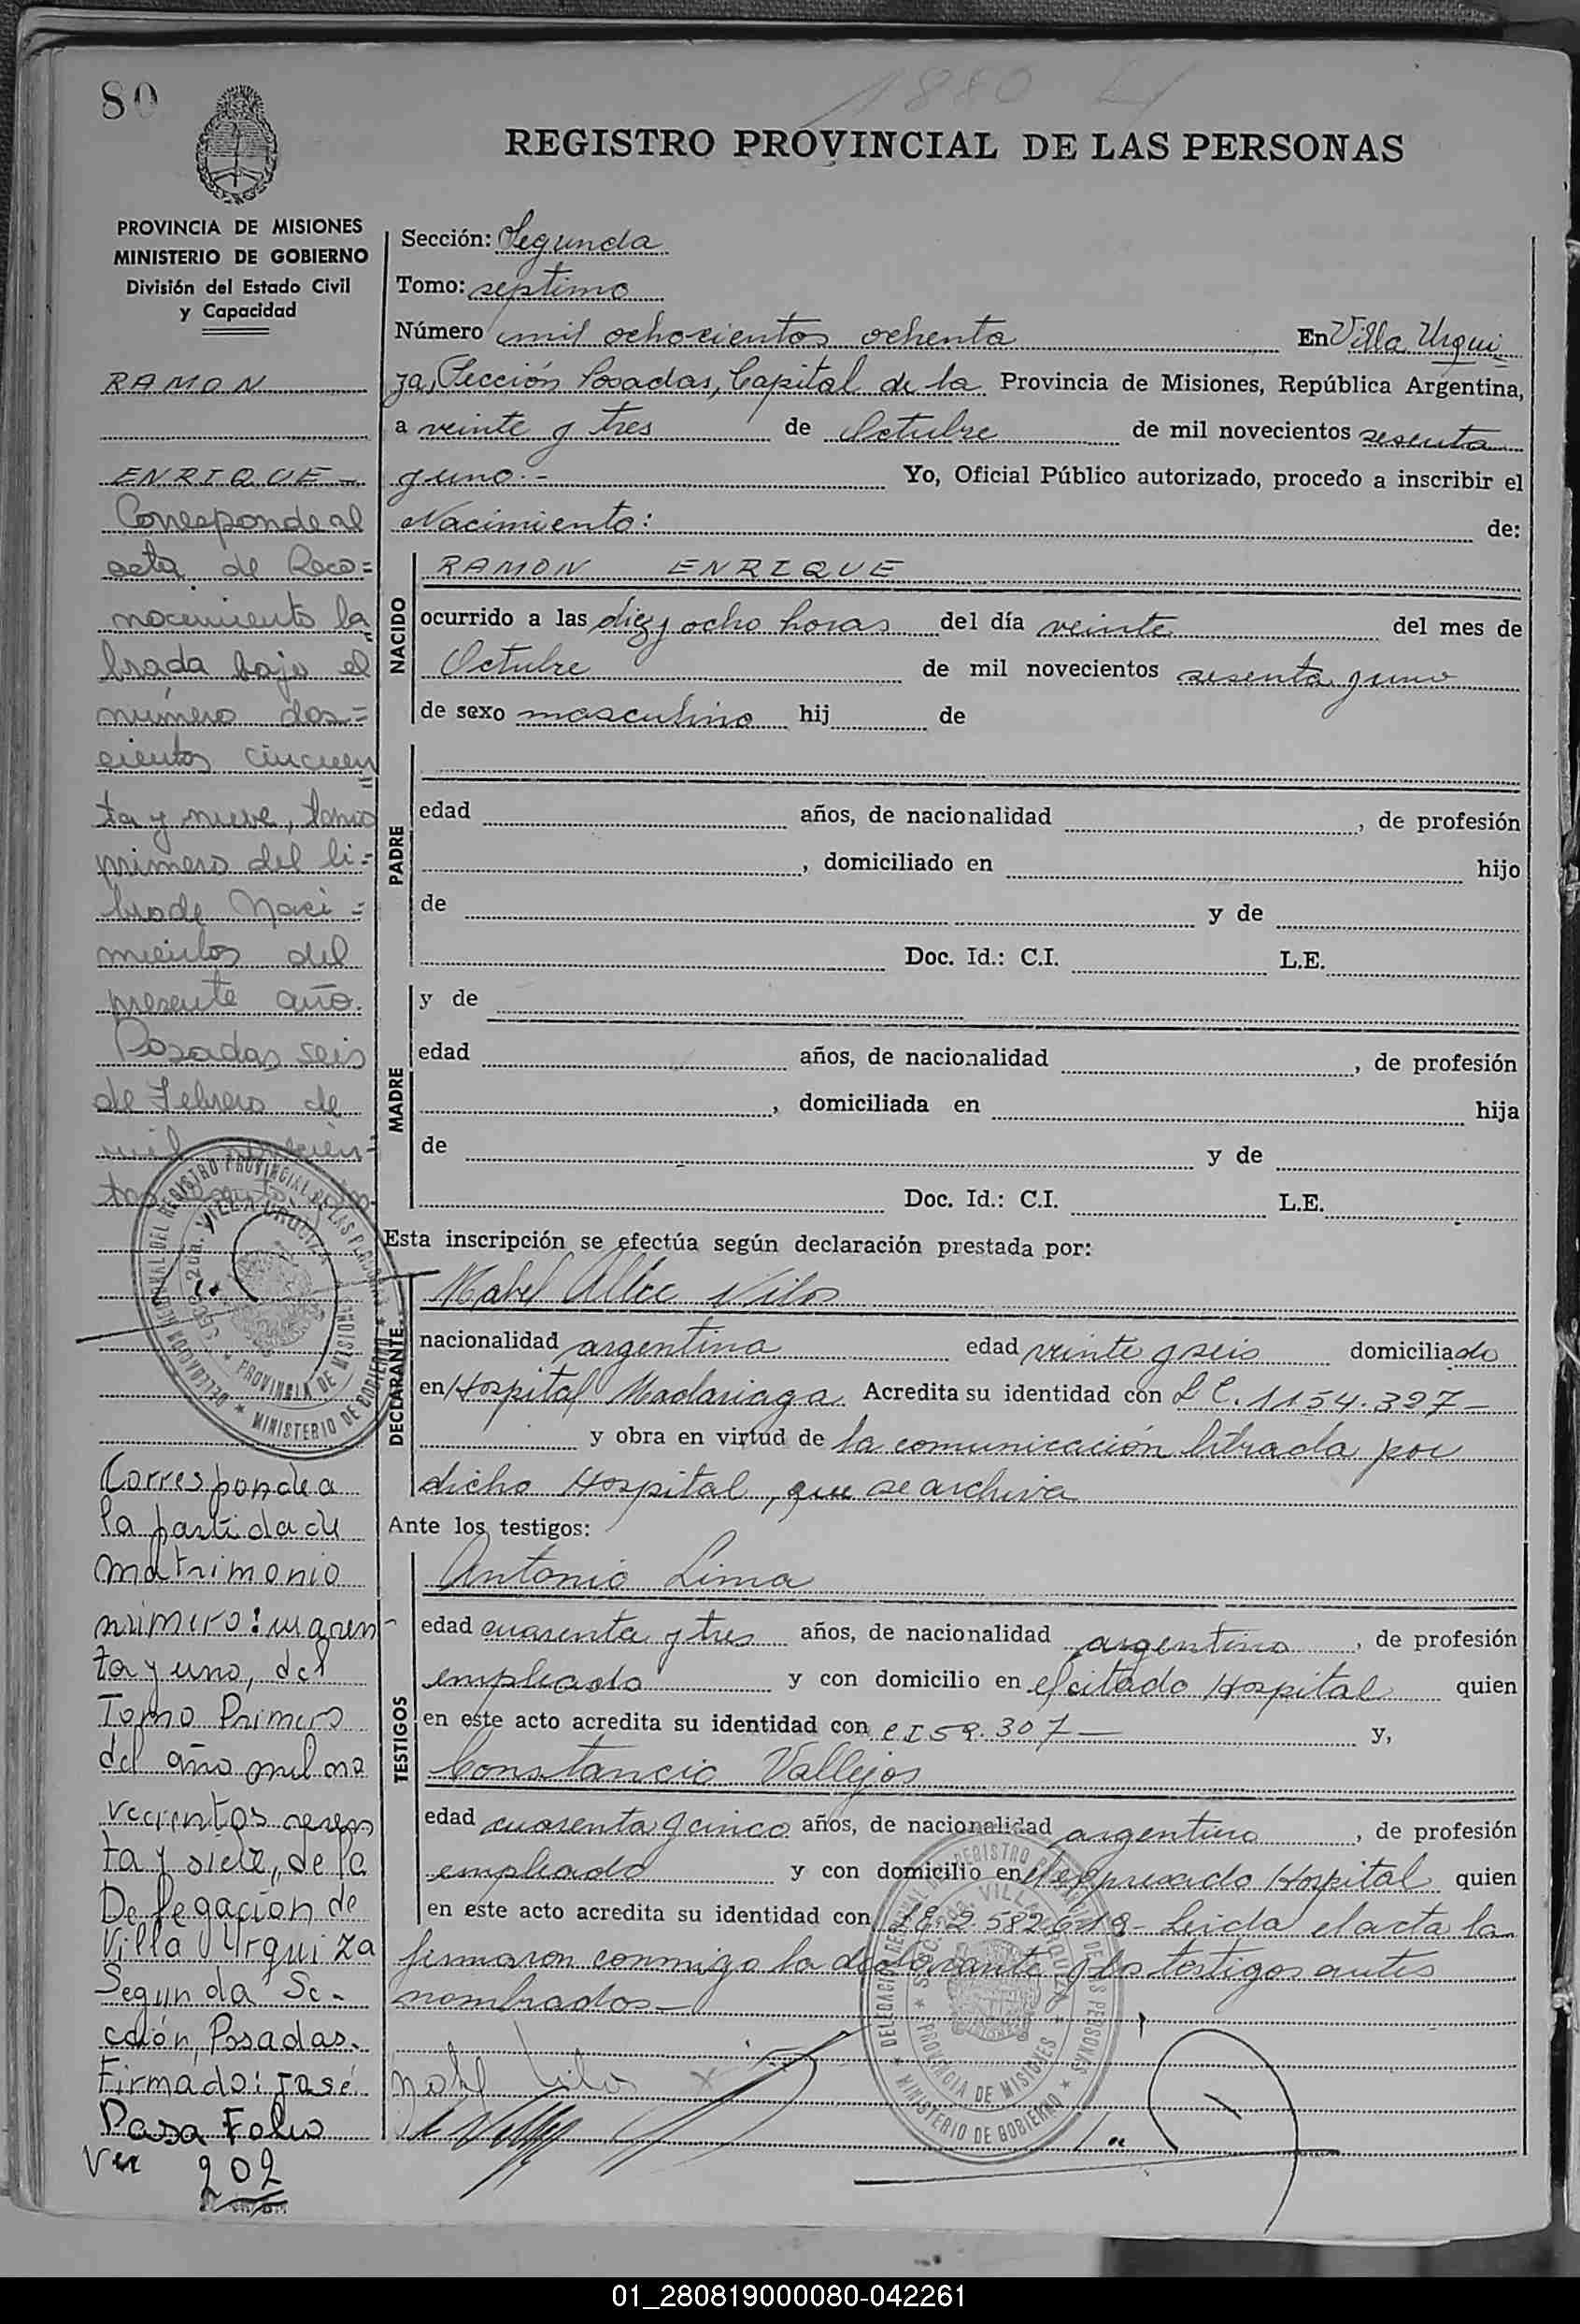 80
1880
REGISTRO PROVINCIAL DE LAS PERSONAS
PROVINCIA DE MISIONES
MINISTERIO DE GOBIERNO
División del Estado Civil
y Capacidad
RAMON
ENRIQUE -
Corresponde al
acta de Reco=
nocimiento la
brada bajo el
número dos=
cientos cincuen
ta y nueve, tomo
primero del li=
bro de Naci=
mientos del
presente año.
Posadas seis
de Febrero de
mil novecien-
tos
Corresponde a
la partida de
matrimonio
número: cuaren-
ta y uno, del
Tomo Primero
del año mil no
vecientos sesen
ta y siete, de la
Delegación de
Villa Urquiza
Segunda Sc-
cción, Posadas.
Firmado: José
Pasa Folio
Ver 202
Sección: Segunda
Tomo: septimo
Número mil ochocientos ochenta En Villa Urqui
za, Sección Posadas, Capital de la Provincia de Misiones, República Argentina,
a veinte y tres de Octubre de mil novecientos sesenta
y uno.- Yo, Oficial Público autorizado, procedo a inscribir el
Nacimiento: de:
NACIDO
RAMON ENRIQUE
ocurrido a las diez y ocho horas del día veinte del mes de
Octubre de mil novecientos sesenta y uno
de sexo masculino hij de
PADRE
edad años, de nacionalidad , de profesión
, domiciliado en hijo
de y de
Doc. Id.: C.I. L.E.
MADRE
y de
edad años, de nacionalidad , de profesión
, domiciliada en hija
de y de
Doc. Id.: C.I. L.E.
Esta inscripción se efectúa según declaración prestada por:
DECLARANTE
Mabel Vilos
nacionalidad argentina edad veinte y seis domiciliado
en Hospital Madariaga Acredita su identidad con L C. 1154.327-
y obra en virtud de la comunicación librada por
dicho Hospital, que se archiva
Ante los testigos:
TESTIGOS
Antonio Lima
edad cuarenta y tres años, de nacionalidad argentino, de profesión
empleado y con domicilio en el citado Hospital quien
en este acto acredita su identidad con C I 59.307- y,
Constancio Vallejos
edad cuarenta y cinco años, de nacionalidad argentino, de profesión
empleado y con domicilio en el expresado Hospital quien
en este acto acredita su identidad con Leida el acta la
firmaron conmigo la declarante y los testigos antes
nombrados-
DELEGACION REGIONAL DEL REGISTRO PROVINCIAL DE LAS PERSONAS
MINISTERIO DE GOBIERNO
PROVINCIA DE MISIONES
01_280819000080-042261